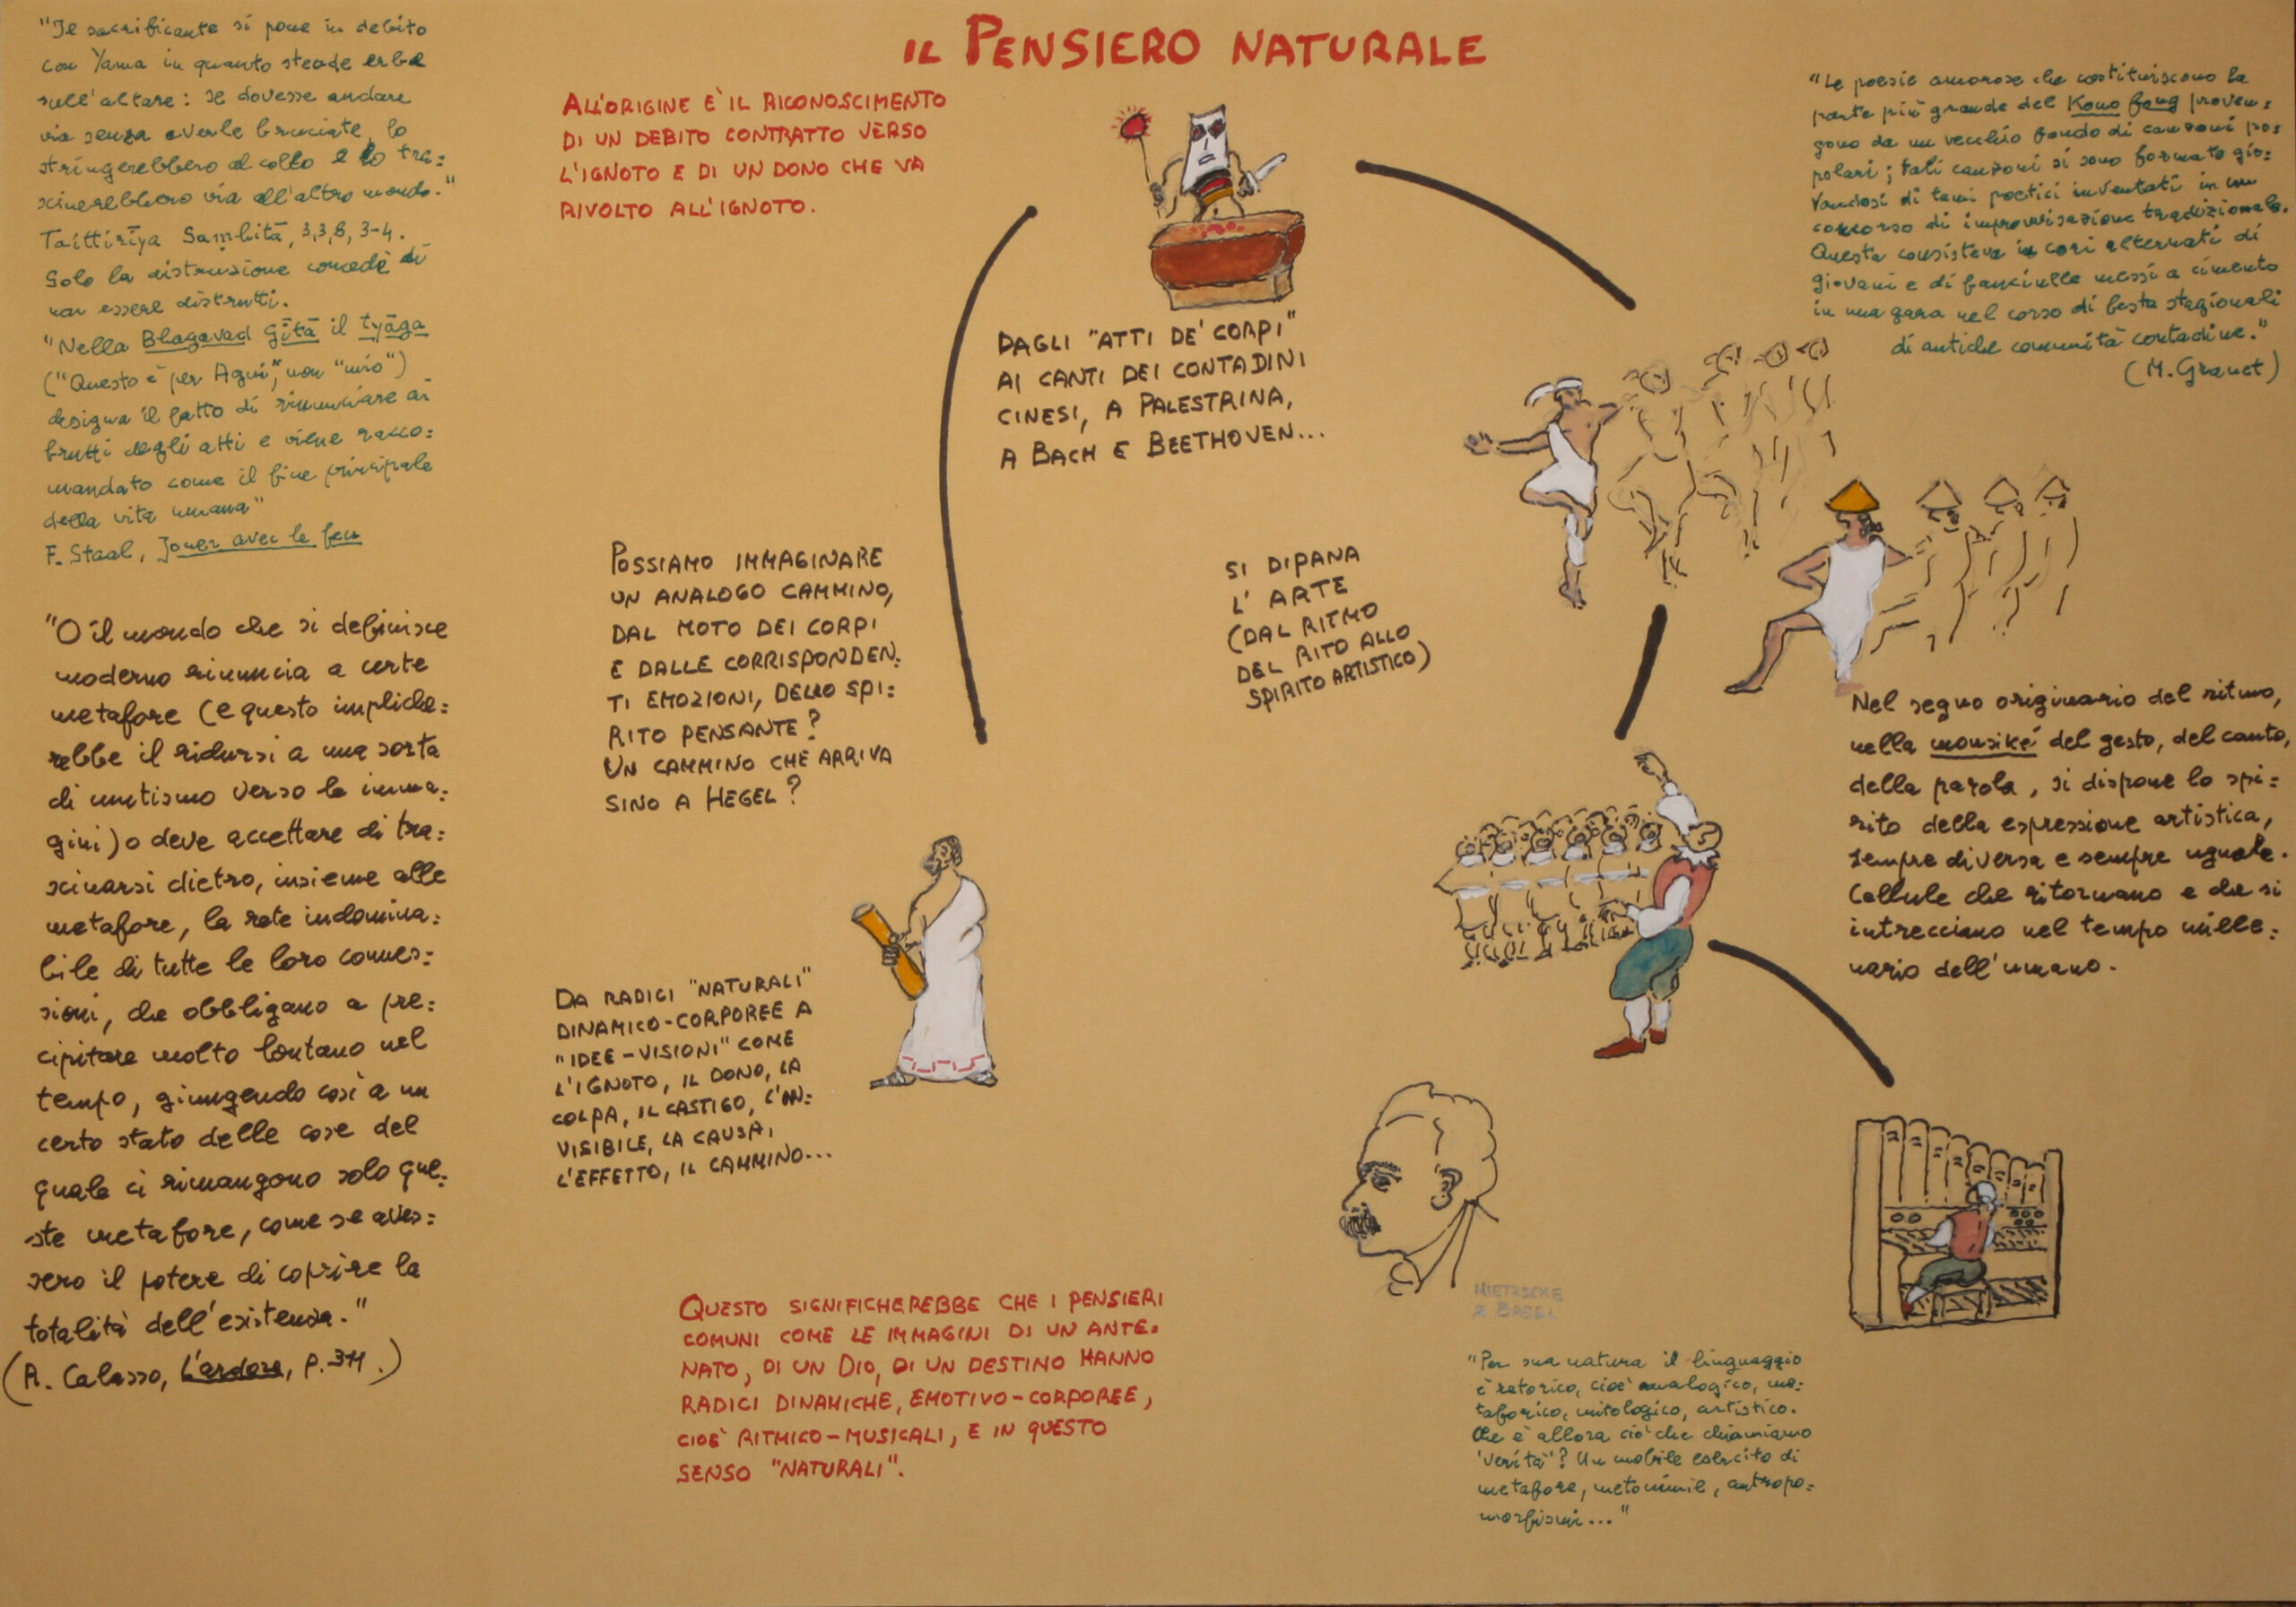 IL PENSIERO NATURALE
"Il sacrificante si pone in debito
con Yama in quanto stende erbe
sull'altare: se dovesse andare
via senza averle bruciate, lo
stringerebbero al collo e lo tra=
scinerebbero via all'altro mondo."
Taittirīya Saṃhitā, 3,3,8, 3-4.
Solo la distruzione concede di
non essere distrutti.
"Nella Bhagavad Gītā il tyāga
("Questo è per Agni", non "mio")
designa il fatto di rinunciare ai
frutti degli atti e viene racco=
mandato come il fine principale
della vita umana"
F. Staal, Jouer avec le feu
"O il mondo che si definisce
moderno rinuncia a certe
metafore (e questo impliche=
rebbe il ridursi a una sorta
di mutismo verso le imma=
gini) o deve accettare di tra=
scinarsi dietro, insieme alle
metafore, la rete indomina=
bile di tutte le loro connes=
sioni, che obbligano a pre=
cipitare molto lontano nel
tempo, giungendo così a un
certo stato delle cose del
quale ci rimangono solo que=
ste metafore, come se aves=
sero il potere di coprire la
totalità dell'esistenza."
(R. Calasso, L'ardore, p.311.)
ALL'ORIGINE E' IL RICONOSCIMENTO
DI UN DEBITO CONTRATTO VERSO
L'IGNOTO E DI UN DONO CHE VA
RIVOLTO ALL'IGNOTO.
DAGLI "ATTI DE' CORPI"
AI CANTI DEI CONTADINI
CINESI, A PALESTRINA,
A BACH E BEETHOVEN...
POSSIAMO IMMAGINARE
UN ANALOGO CAMMINO,
DAL MOTO DEI CORPI
E DALLE CORRISPONDEN=
TI EMOZIONI, DELLO SPI=
RITO PENSANTE?
UN CAMMINO CHE ARRIVA
SINO A HEGEL?
SI DIPANA
L'ARTE
(DAL RITMO
DEL RITO ALLO
SPIRITO ARTISTICO)
DA RADICI "NATURALI"
DINAMICO-CORPOREE A
"IDEE-VISIONI" COME
L'IGNOTO, IL DONO, LA
COLPA, IL CASTIGO, L'IN=
VISIBILE, LA CAUSA,
L'EFFETTO, IL CAMMINO...
QUESTO SIGNIFICHEREBBE CHE I PENSIERI
COMUNI COME LE IMMAGINI DI UN ANTE=
NATO, DI UN DIO, DI UN DESTINO HANNO
RADICI DINAMICHE, EMOTIVO-CORPOREE,
CIOE' RITMICO-MUSICALI, E IN QUESTO
SENSO "NATURALI".
"Le poesie amorose che costituiscono la
parte più grande del Kouo fong proven=
gono da un vecchio fondo di canzoni po=
polari; tali canzoni si sono formate gio=
vandosi di temi poetici inventati in un
concorso di improvvisazione tradizionale.
Questa consisteva in cori alternati di
giovani e di fanciulle messi a cimento
in una gara nel corso di feste stagionali
di antiche comunità contadine."
(M. Granet)
Nel segno originario del ritmo,
nella mousiké del gesto, del canto,
della parola, si dispone lo spi=
rito della espressione artistica,
sempre diversa e sempre uguale.
Cellule che ritornano e che si
intrecciano nel tempo mille=
nario dell'umano.
NIETZSCHE
A BASEL
"Per sua natura il linguaggio
è retorico, cioè analogico, me=
taforico, mitologico, artistico.
Che è allora ciò che chiamiamo
'verità'? Un mobile esercito di
metafore, metonimie, antropo=
morfismi..."